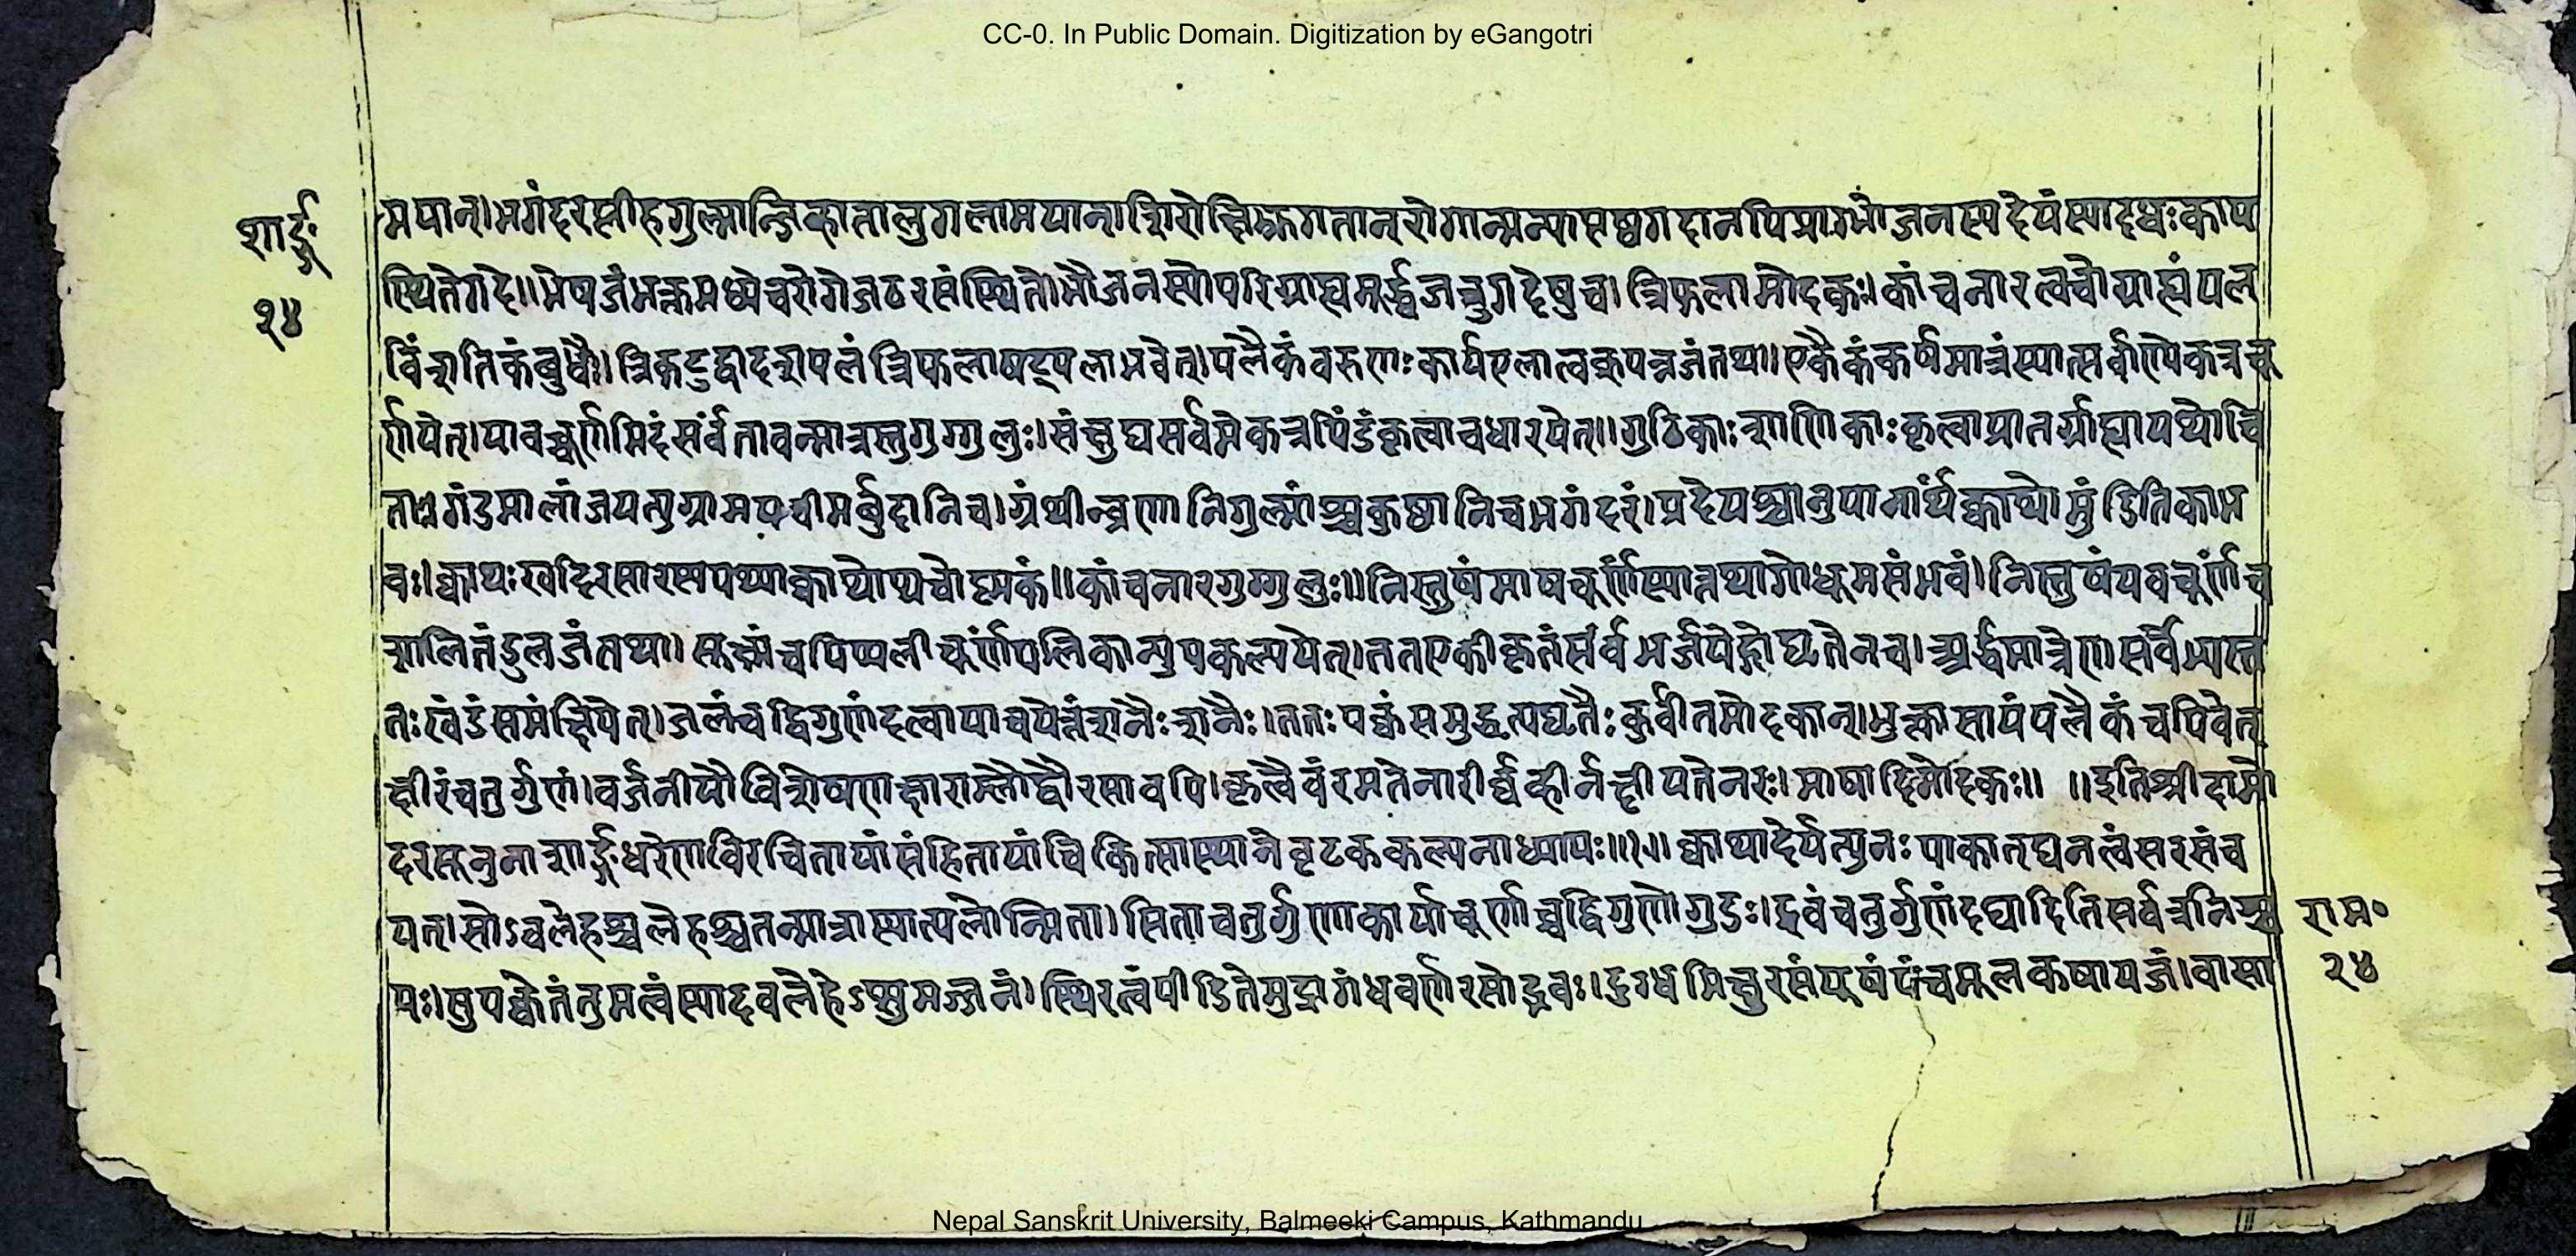 CC-0. In Public Domain. Digitization by eGangotri
शार्ङ्गः
२४
मयान्।भगंदरप्लीहगुल्मान्जिव्हातालुगलामयान्।शिरोक्षिभ्रूगतान्रोगान्मन्यापृष्ठगदानपि।प्राग्भोजनस्यदेयंस्यादधःकाय
स्थितेगदे॥भेषजंभक्तमध्येचरोगेजठरसंस्थिते।भोजनस्योपरिग्राह्यमूर्द्ध्वजत्रुगदेषुच।त्रिफलामोदकः।कांचनारत्वचोग्राह्यंपल
विंशतिकंबुधैः।त्रिकटुद्वादशपलंत्रिफलाषट्पलाभवेत्।पलैकंवरुणःकार्यएलात्वक्पत्रजंतथा।एकैकंकर्षमात्रंस्यात्सर्वाण्येकत्रचू
र्णयेत्।यावच्चूर्णमिदंसर्वंतावन्मात्रस्तुगुग्गुलुः।संक्षुद्यसर्वमेकत्रपिंडंकृत्वाचधारयेत्॥गुटिकाःशाणिकाःकृत्वाप्रातर्ग्राह्यायथोचि
ताः।गंडमालांजयत्युग्रामपचीमर्बुदानिच।ग्रंथीन्व्रणानिगुल्मांश्चकुष्ठानिचभगंदरं।प्रदेयश्चानुपानार्थंक्वाथोमुंडितिकाभ
वः।क्वाथःखदिरसारस्यपथ्याक्वाथोथचोष्मकं॥कांचनारगुग्गुलुः॥निस्तुषंमाषचूर्णंस्यात्तथागोधूमसंभवं।निस्तुषंयवचूर्णंच
शालितंडुलजंतथा॥सूक्ष्मंचपिप्पलीचूर्णंपलिकान्युपकल्पयेत्।ततएकीकृतंसर्वंभर्जयेद्गोघृतेनच।अर्द्धमात्रेणसर्वेभ्यस्त
तःखंडंसमंक्षिपेत्।जलंचद्विगुणंदत्वापाचयेत्तंशनैःशनैः।ततःपक्वंसमुद्धृत्यघृतैःकुर्वीतमोदकान्।भुक्त्वासायंपलैकंचपिवेत्
क्षीरंचतुर्गुणं।वर्जनीयौविशेषेणक्षाराम्लौद्वौरसावपि।कृत्वैवंरमतेनारीर्वह्वीर्नक्षीयतेनरः।माषादिमोदकः॥ ॥इतिश्रीदामो
दरसूनुनाशार्ङ्गधरेणविरचितायांसंहितायांचिकित्सास्थानेवटककल्पनाध्यायः॥॥क्वाथादेर्यत्पुनःपाकात्घनत्वंसरसंच
यत्।सोऽवलेहश्चलेहश्चतन्मात्रास्यात्पलोन्मिता।सिताचतुर्गुणाकार्याचूर्णाच्चद्विगुणोगुडः।द्रवंचतुर्गुणंदद्यादितिसर्वत्रनिश्च
यः।सुपक्वेतंतुमत्वंस्यादवलेहेऽप्सुमज्जनं।स्थिरत्वंपीडितेमुद्रागंधवर्णरसोद्भवः।दुग्धमिक्षुरसंयूषंपंचमूलकषायजं।वासा
राम॰
२४
Nepal Sanskrit University, Balmeeki Campus, Kathmandu